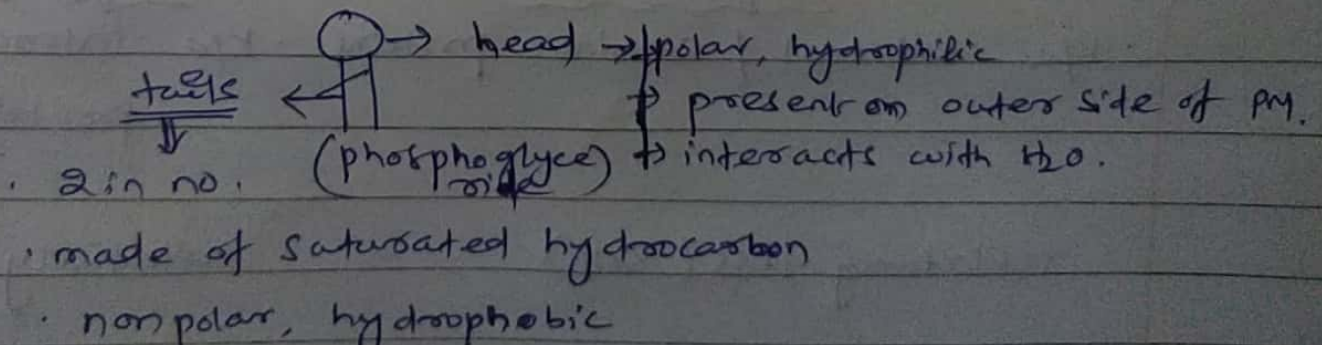 head → polar, hydrophilic
tails
→ present on outer side of PM.
(phosphoglyceride) → interacts with H2O.
· 2 in no.
· made of saturated hydrocarbon
· nonpolar, hydrophobic